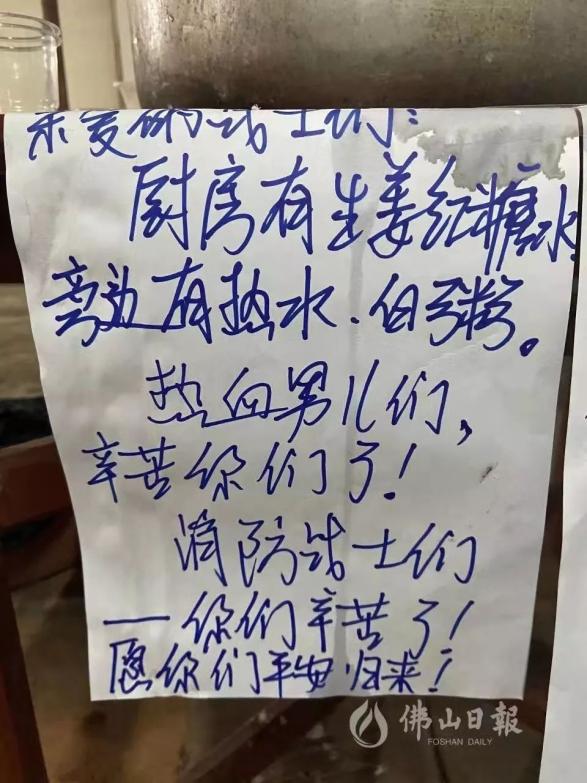 亲爱的战士们：
厨房有生姜红糖水，
旁边有热水、白粥。
热血男儿们，
辛苦你们了！
消防战士们
——你们辛苦了！
愿你们平安归来！
佛山日報
FOSHAN DAILY